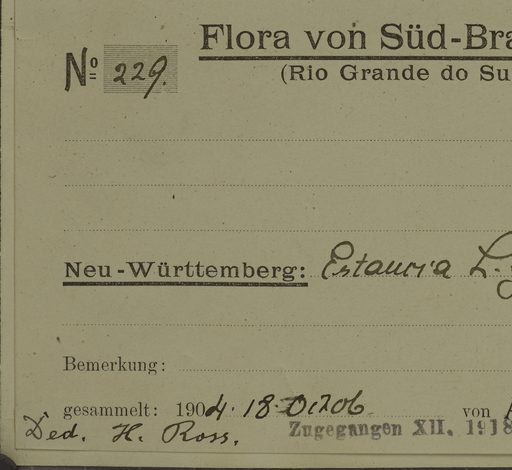 Flora von Süd-Bra
(Rio Grande do Su
Nº 229.
Neu-Württemberg: Estancia L.
Bemerkung:
gesammelt: 1904. 18. October von
Ded. H. Ross. Zugegangen XII. 1918